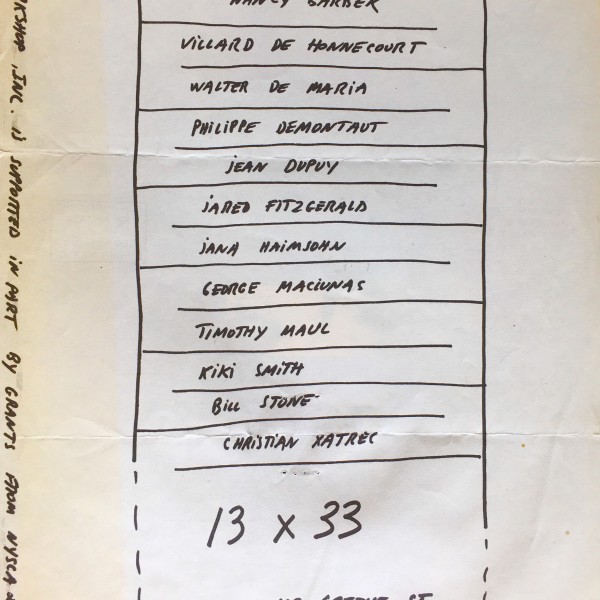 NANCY BARBER
VILLARD DE HONNECOURT
WALTER DE MARIA
PHILIPPE DEMONTAUT
JEAN DUPUY
JARED FITZGERALD
JANA HAIMSOHN
GEORGE MACIUNAS
TIMOTHY MAUL
KIKI SMITH
BILL STONE
CHRISTIAN XATREC
13 x 33
INC. IS SUPPORTED IN PART BY GRANTS FROM NYSCA